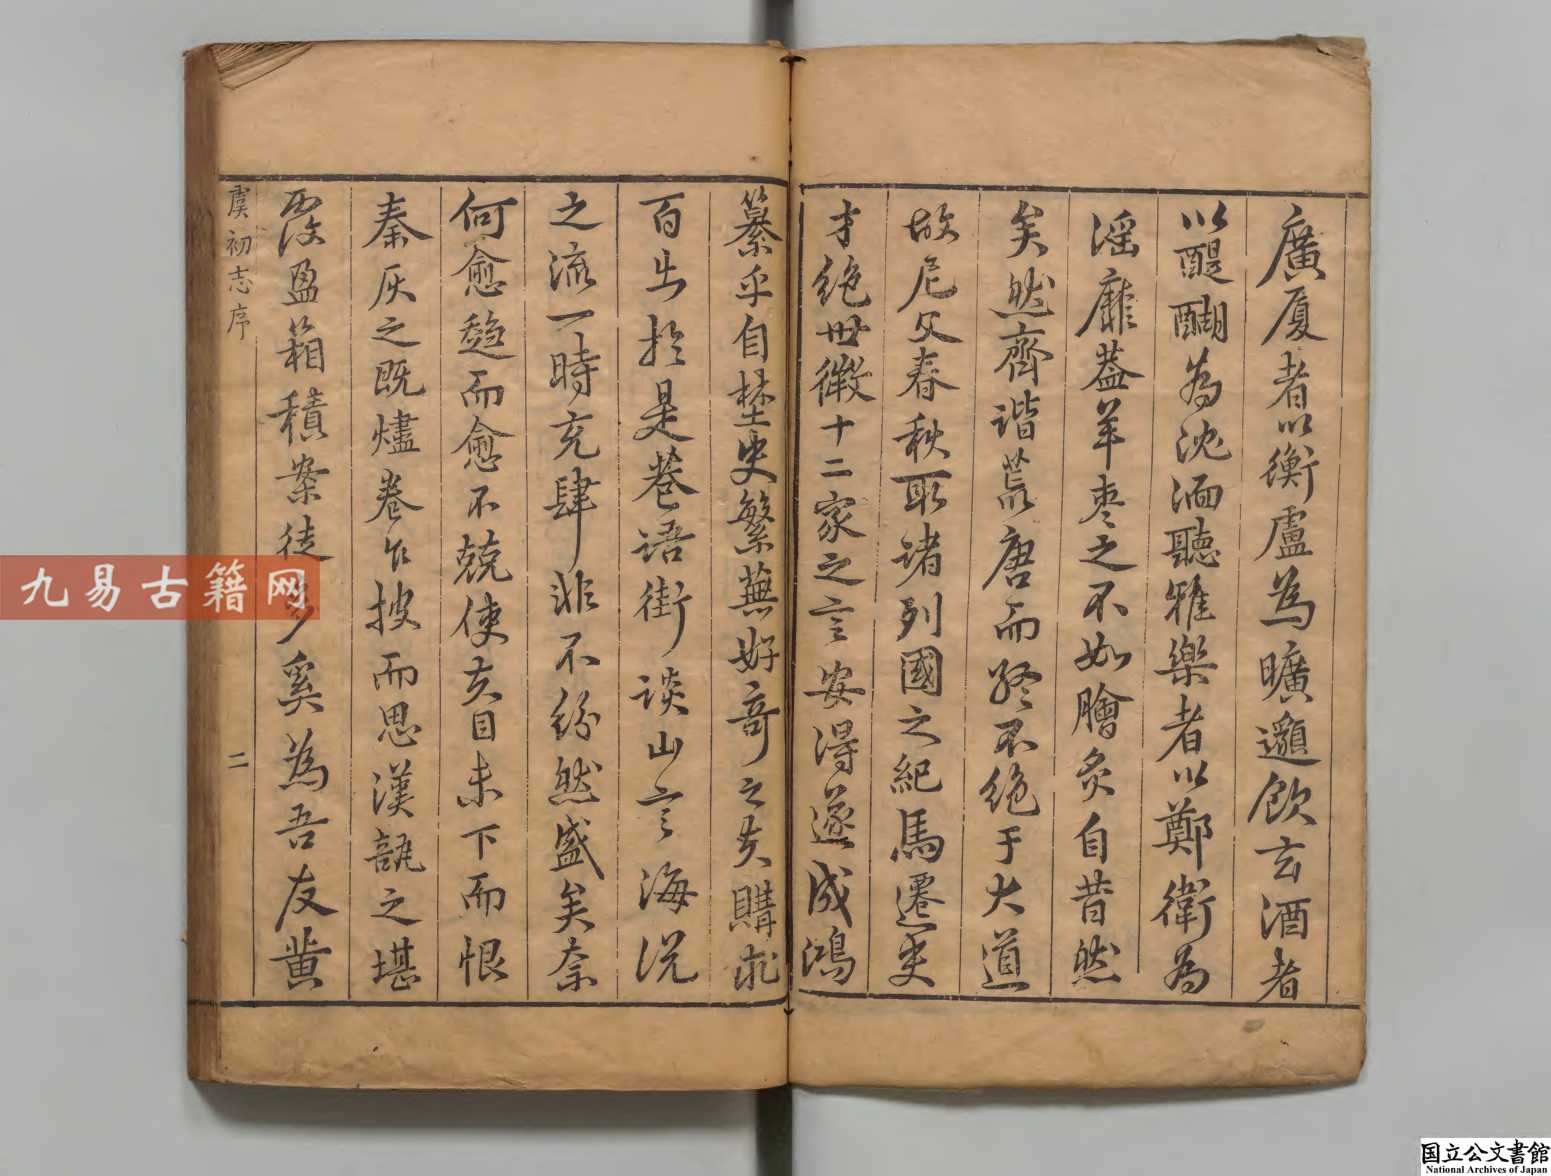 廣廈者以衡盧為曠邈飲玄酒者
以醍醐為沈湎聽雅樂者以鄭衛為
淫靡蓋羊枣之不如膾炙自昔然
矣然齊諧荒唐而終不絕于大道
故尼父春秋取諸列國之紀馬遷吏
才絕世徵十二家之言安得遂成鴻
纂乎自埜史繁蕪好奇之夫購求
百出於是巷语街谈山言海说
之流一時充肆非不紛然盛矣奈
何愈趋而愈不兢使亥目未下而恨
秦灰之既燼卷乍披而思漢瓿之堪
覆盈箱積案徒多奚為吾友黄
虞初志序
二
九易古籍网
国立公文書館
National Archives of Japan